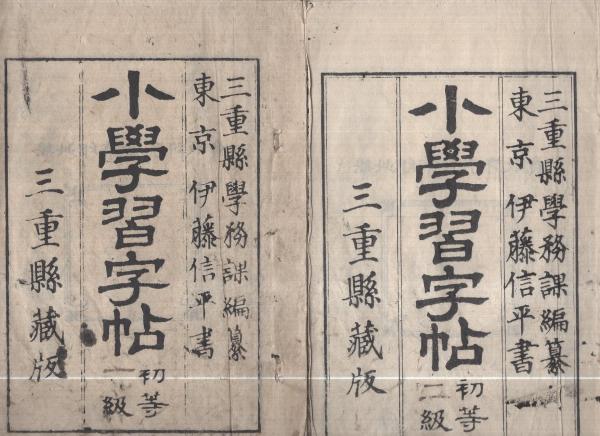 三重縣學務課編纂
東京 伊藤信平書
小學習字帖 初等二級
三重縣藏版
三重縣學務課編纂
東京 伊藤信平書
小學習字帖 初等一級
三重縣藏版